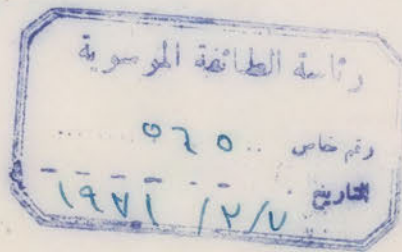 رئاسة الطائفة الموسوية
رقم خاص ٥٦٥
التاريخ ٧/ ٢/ ١٩٧١